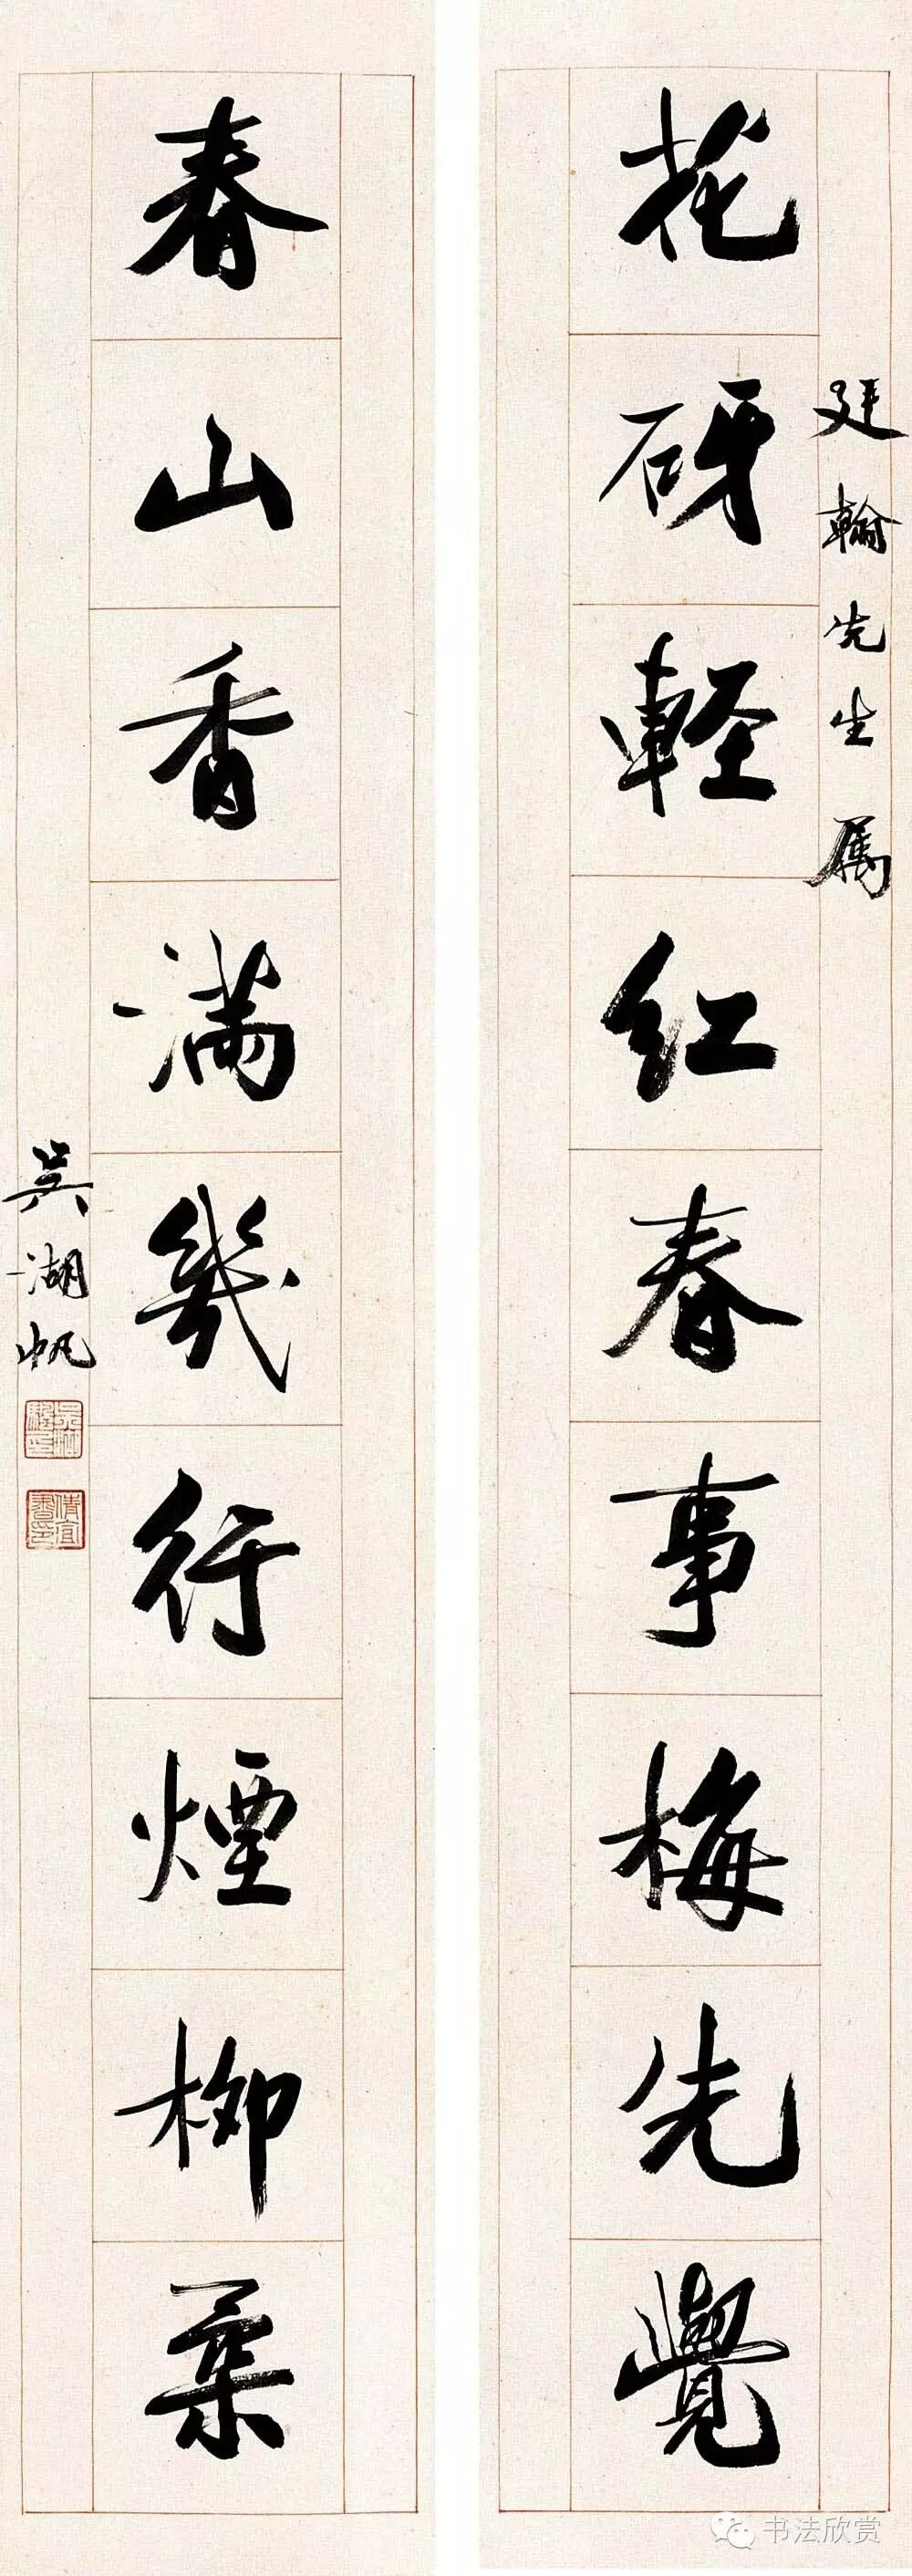 廷翰先生属
花砑輕紅春事梅先覺
春山香滿幾行煙柳柔
吳湖帆
书法欣赏